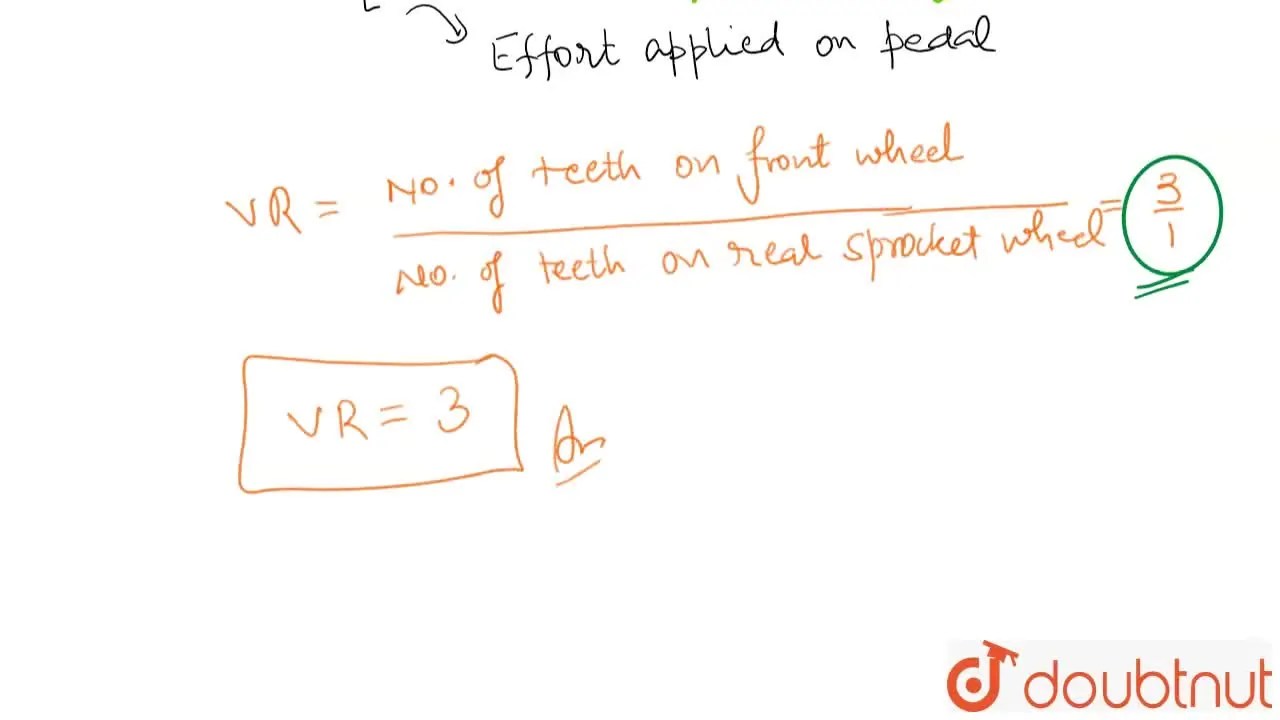 Effort applied on pedal
VR = No. of teeth on front wheel / No. of teeth on real sprocket wheel = 3/1
VR = 3 An
doubtnut